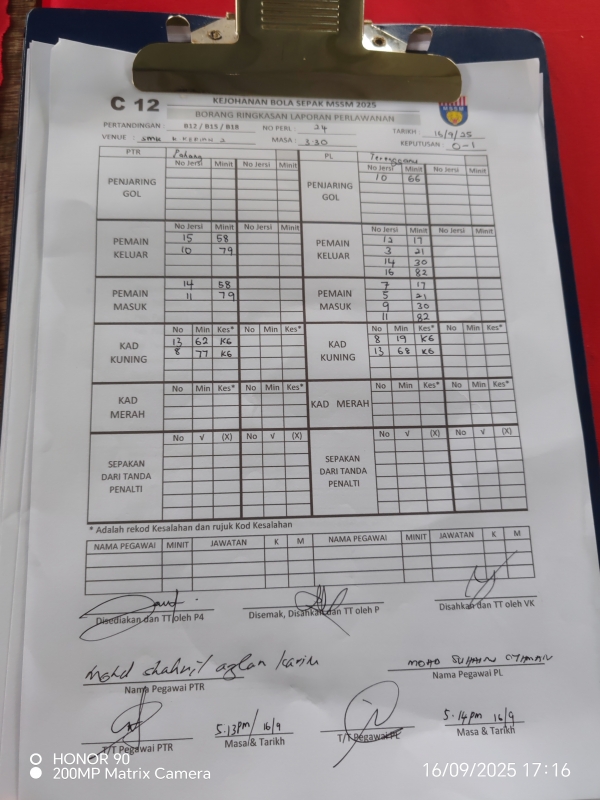 MSSM
C 12 KEJOHANAN BOLA SEPAK MSSM 2025
BORANG RINGKASAN LAPORAN PERLAWANAN
PERTANDINGAN : B12 / B15 / B18 NO PERL : 34 TARIKH 16/9/25
VENUE : SMK MASA : 3:30 KEPUTUSAN 0-1
PTR Pahang PL Terengganu
PENJARING GOL No Jersi Minit No Jersi Minit PENJARING GOL No Jersi Minit No Jersi Minit
10 66
PEMAIN KELUAR No Jersi Minit No Jersi Minit PEMAIN KELUAR No Jersi Minit No Jersi Minit
15 58 12 17
10 79 3 21
14 30
16 82
PEMAIN MASUK 14 58 PEMAIN MASUK 7 17
11 79 5 21
9 30
11 82
KAD KUNING No Min Kes* No Min Kes* KAD KUNING No Min Kes* No Min Kes*
13 62 K6 8 19 K6
8 77 K6 13 68 K6
KAD MERAH No Min Kes* No Min Kes* KAD MERAH No Min Kes* No Min Kes*
SEPAKAN DARI TANDA PENALTI No √ (X) No √ (X) SEPAKAN DARI TANDA PENALTI No √ (X) No √ (X)
* Adalah rekod Kesalahan dan rujuk Kod Kesalahan
NAMA PEGAWAI MINIT JAWATAN K M NAMA PEGAWAI MINIT JAWATAN K M
Disediakan dan TT oleh P4 Disemak, Disahkan dan TT oleh P Disahkan dan TT oleh VK
Mohd Shahril Azlan Karim MOHD
Nama Pegawai PTR Nama Pegawai PL
5.13pm/ 16/9 5.14pm 16/9
T/T Pegawai PTR Masa & Tarikh T/T Pegawai PL Masa & Tarikh
HONOR 90
200MP Matrix Camera 16/09/2025 17:16